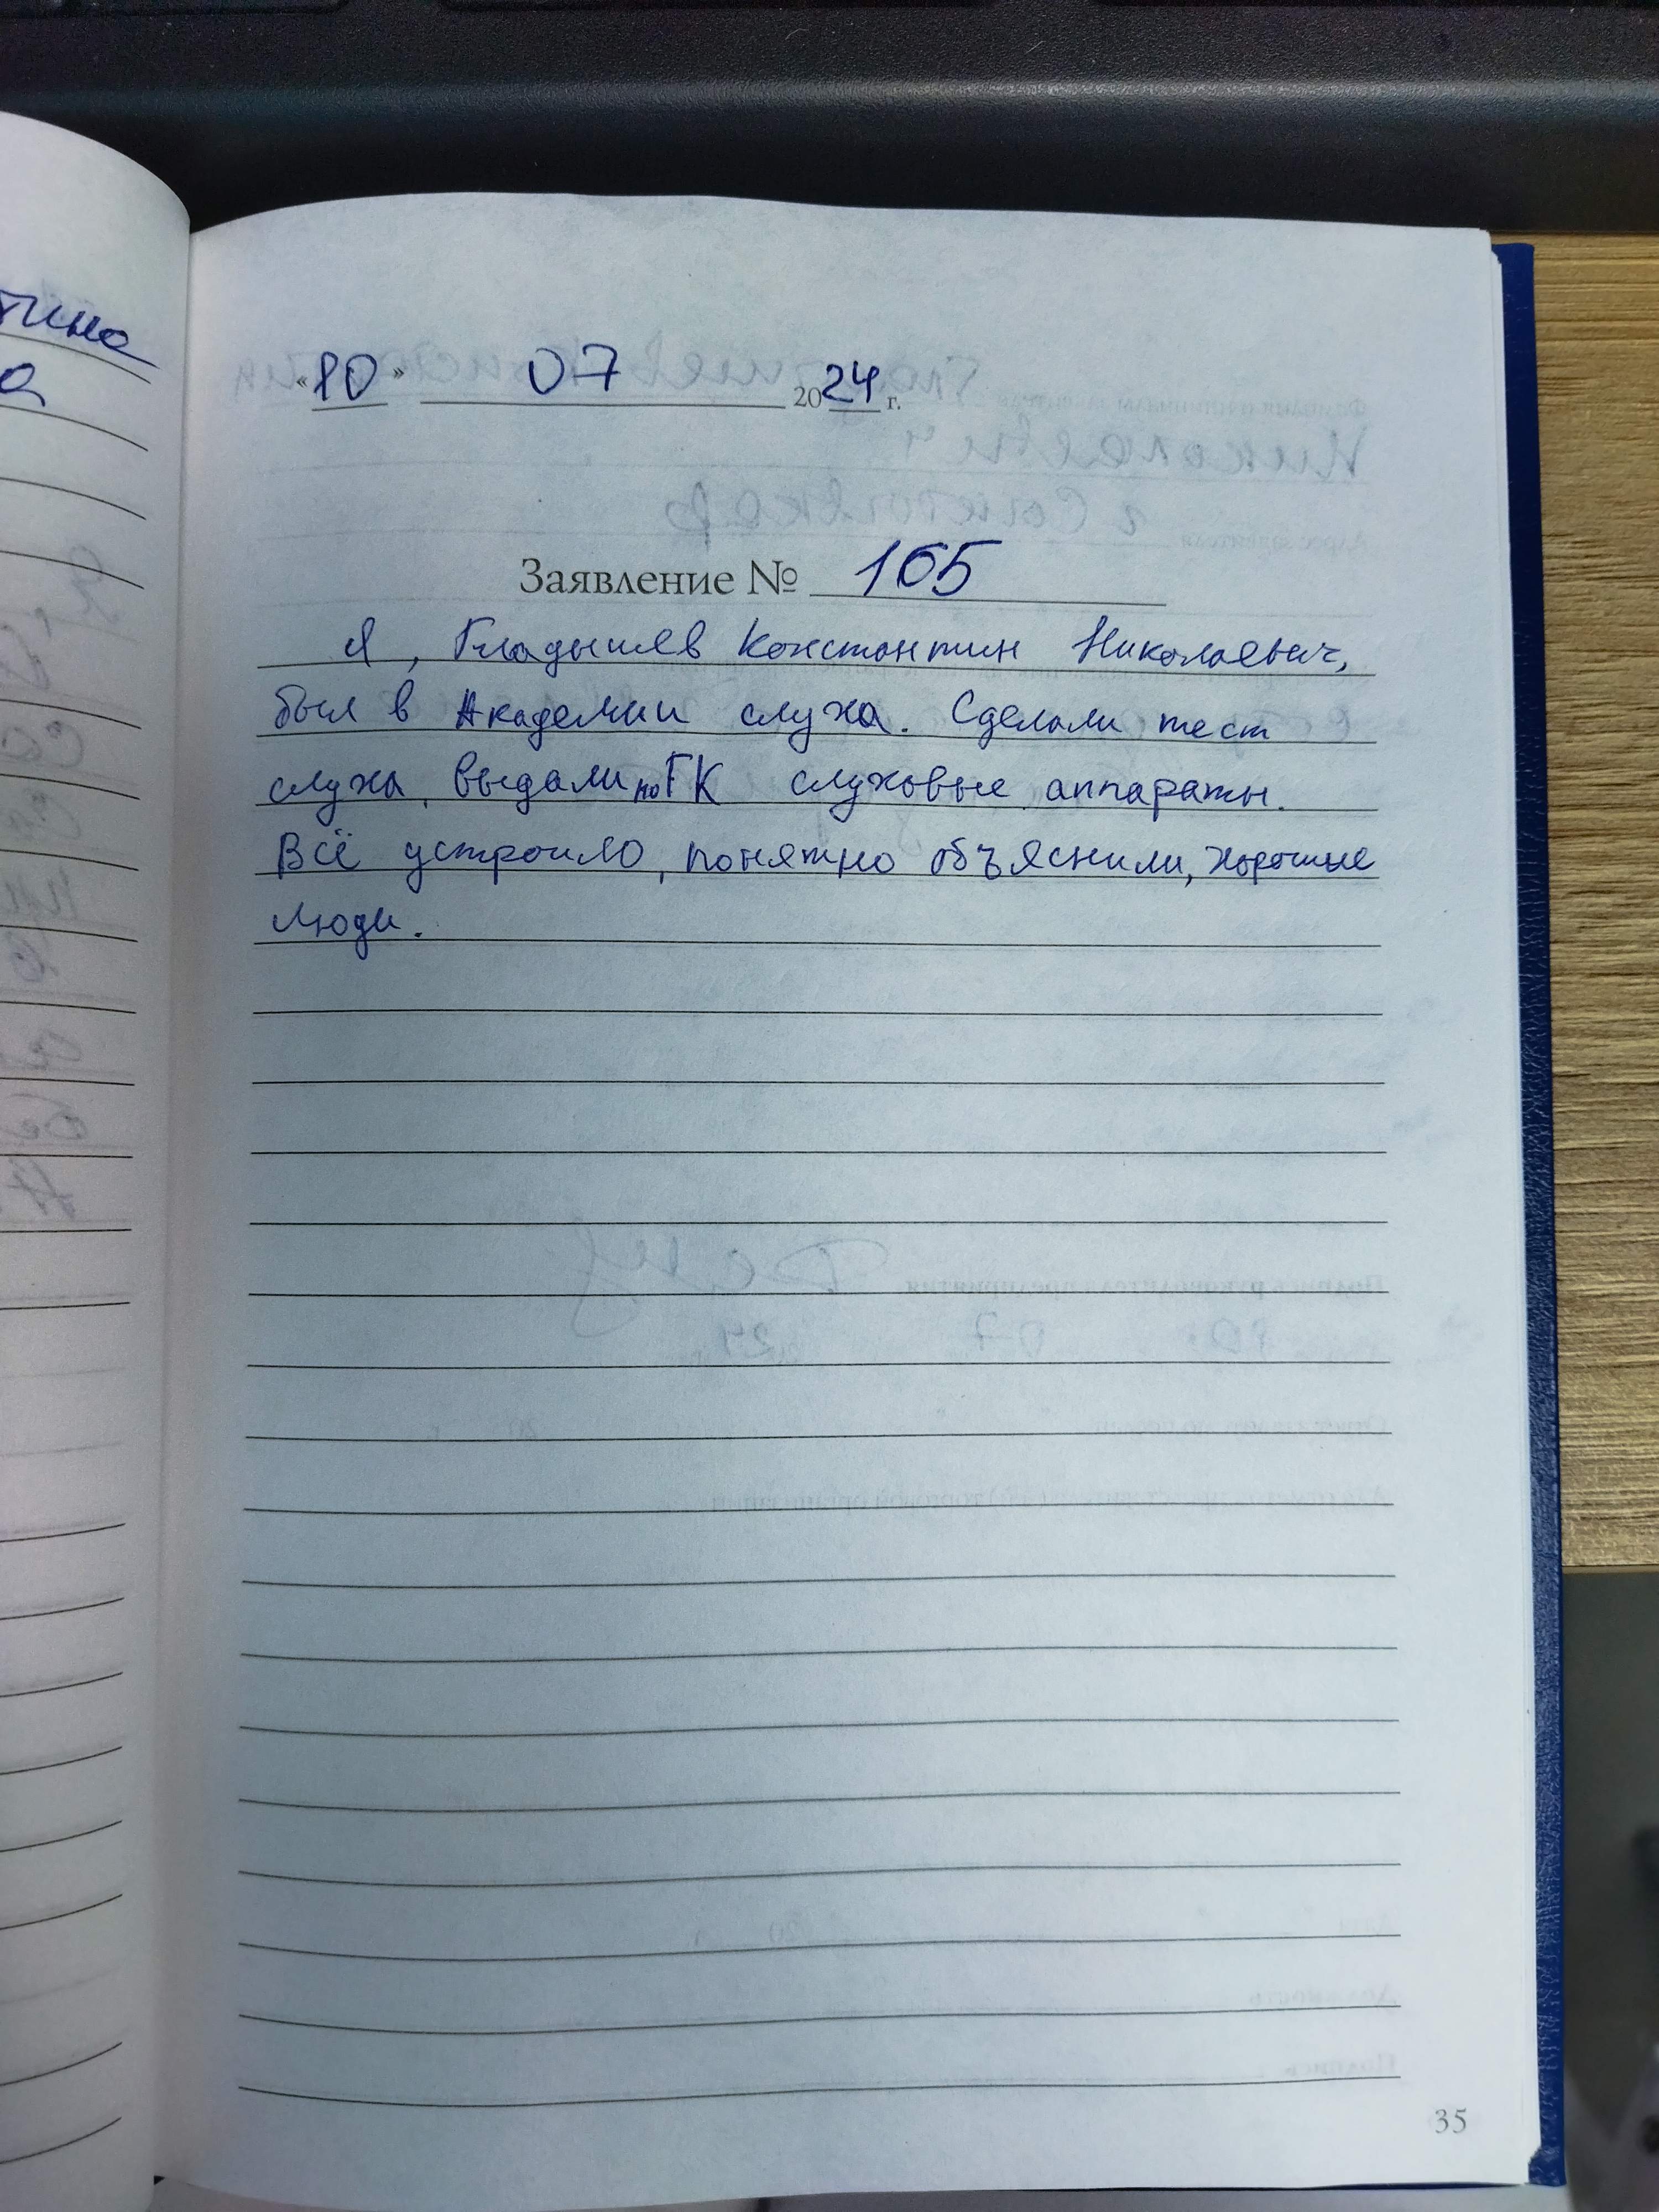 тина
а
«10» 07 2024 г.
Заявление № 165
Я, Гладышев Константин Николаевич,
был в Академии слуха. Сделали тест
слуха, выдали по ГК слуховые аппараты.
Всё устроило, понятно объяснили, хорошие
люди.
35